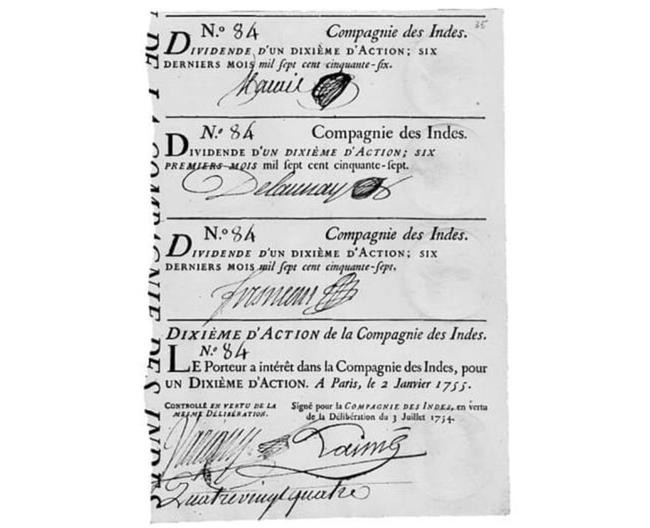 35
N.º 84 Compagnie des Indes.
DIVIDENDE D'UN DIXIÈME D'ACTION; SIX
DERNIERS MOIS mil sept cent cinquante-six.
N.º 84 Compagnie des Indes.
DIVIDENDE D'UN DIXIÈME D'ACTION; SIX
PREMIERS MOIS mil sept cent cinquante-sept.
Delaunay
N.º 84 Compagnie des Indes.
DIVIDENDE D'UN DIXIÈME D'ACTION; SIX
DERNIERS MOIS mil sept cent cinquante-sept.
DIXIÈME D'ACTION de la Compagnie des Indes.
N.º 84
LE Porteur a intérêt dans la Compagnie des Indes, pour
UN DIXIÈME D'ACTION. A Paris, le 2 Janvier 1755.
CONTROLLÉ EN VERTU DE LA
MESME DÉLIBÉRATION.
Signé pour la COMPAGNIE DES INDES, en vertu
de la Délibération du 3 Juillet 1754.
Quatrevingt quatre
DE LA COMPAGNIE DES INDES